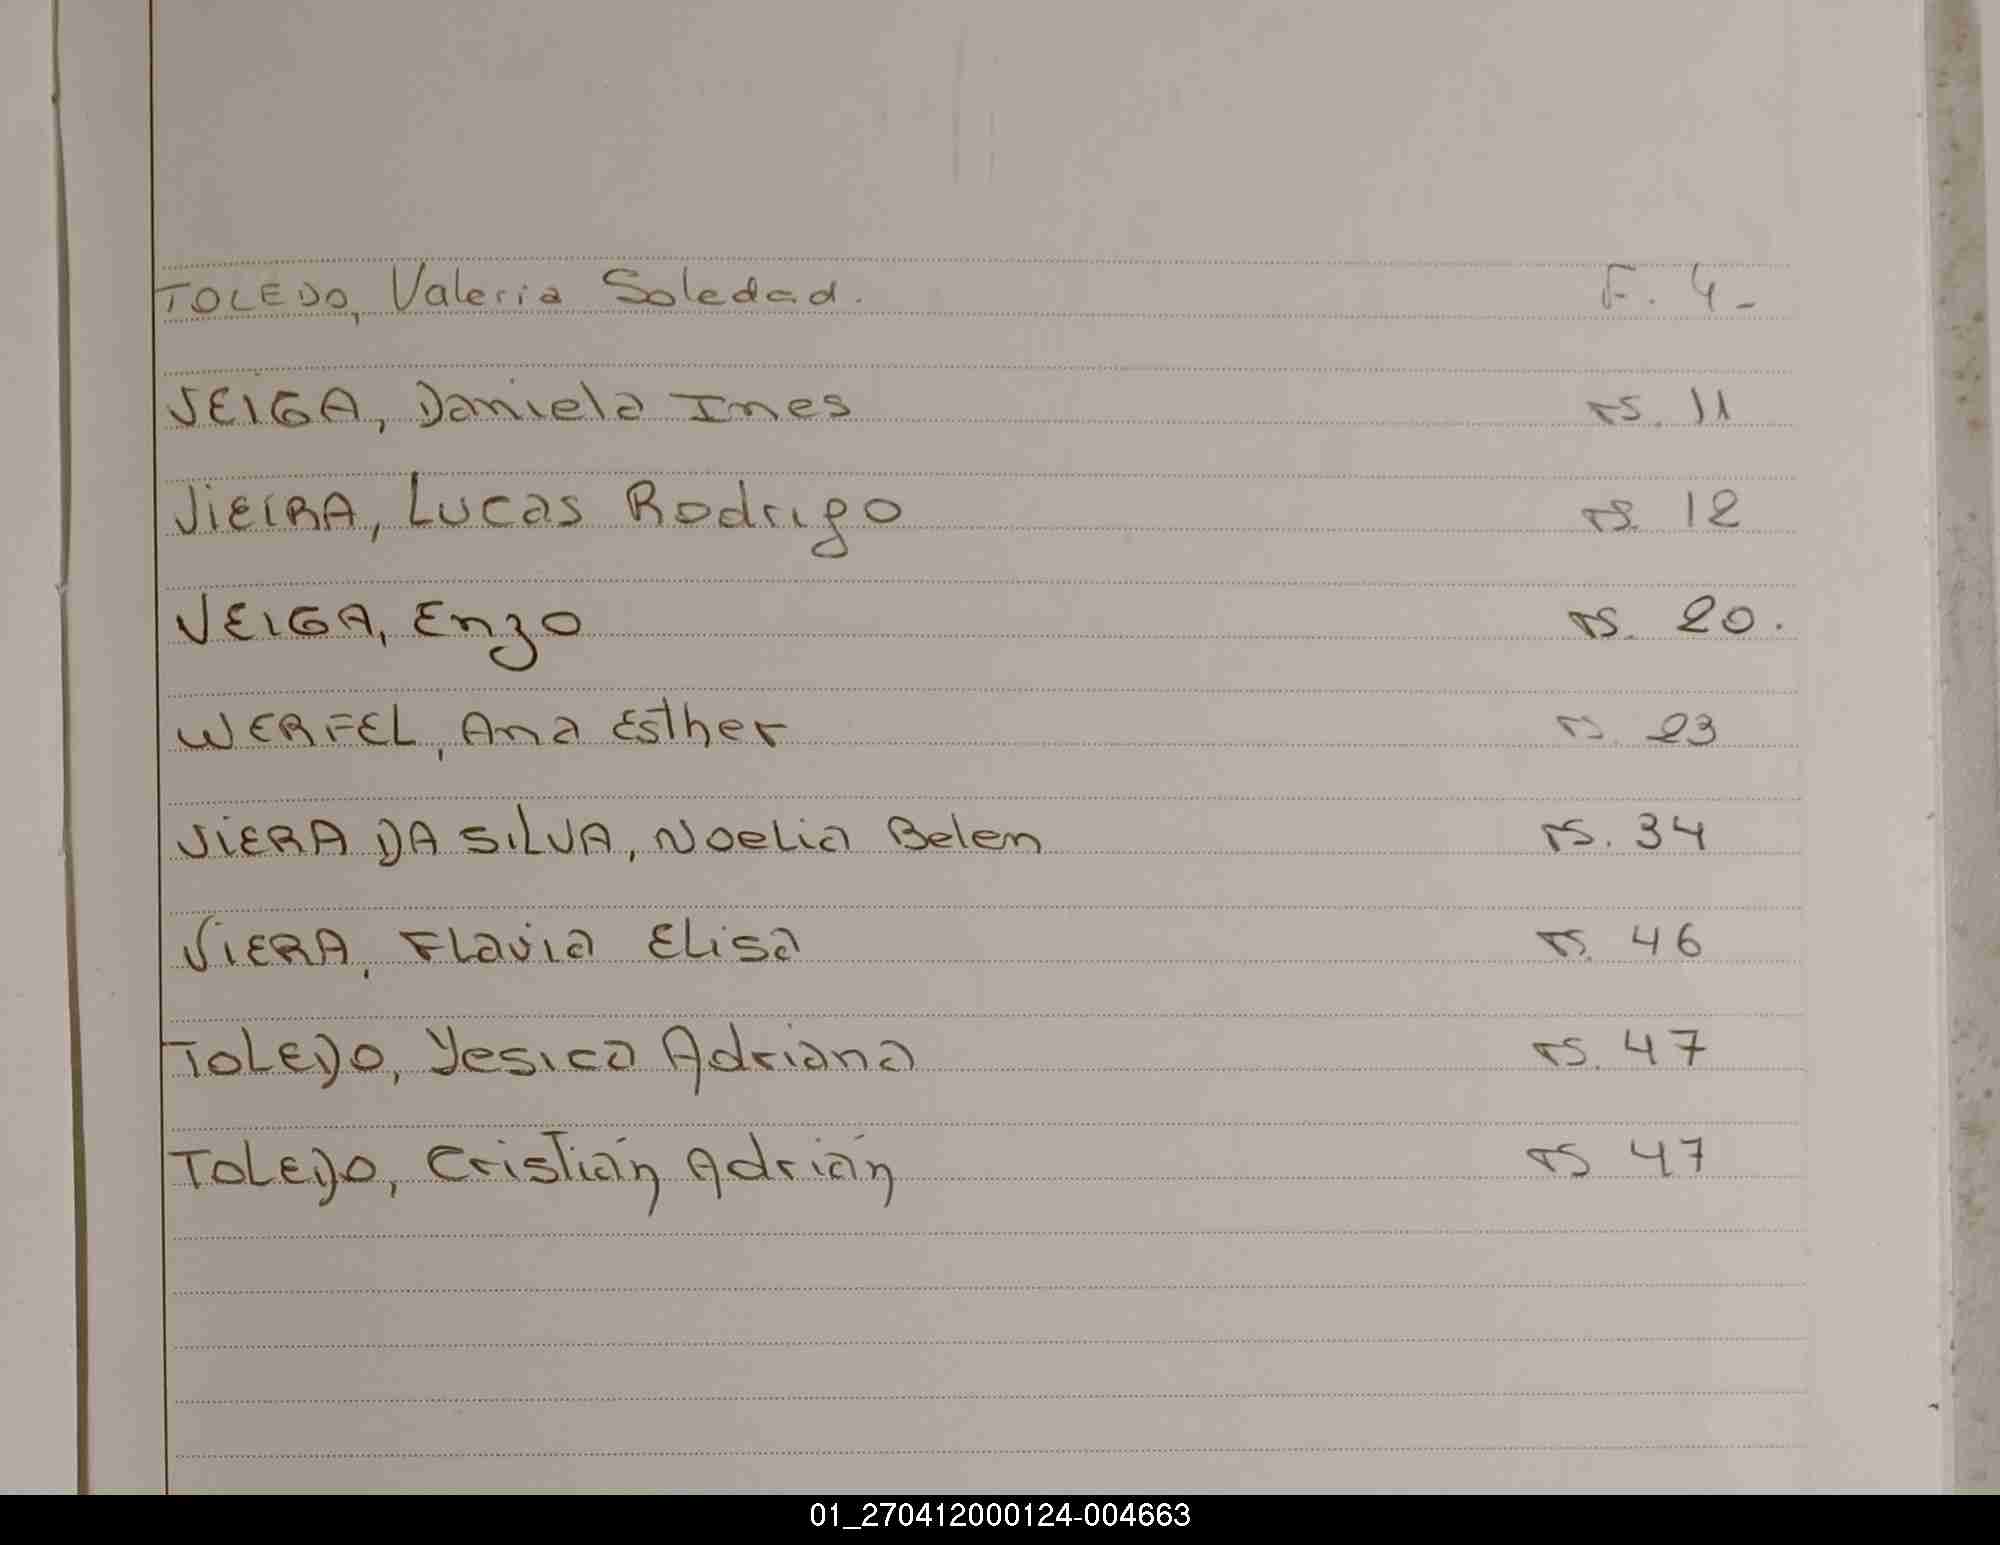 TOLEDO, Valeria Soledad. F. 4-
VEIGA, Daniela Ines fs. 11
VIEIRA, Lucas Rodrigo fs. 12
VEIGA, Enzo fs. 20.
WERFEL, Ana Esther fs. 23
VIERA DA SILVA, Noelia Belen fs. 34
VIERA, Flavia Elisa fs. 46
TOLEDO, Yesica Adriana fs. 47
TOLEDO, Cristián Adrián fs 47
01_270412000124-004663